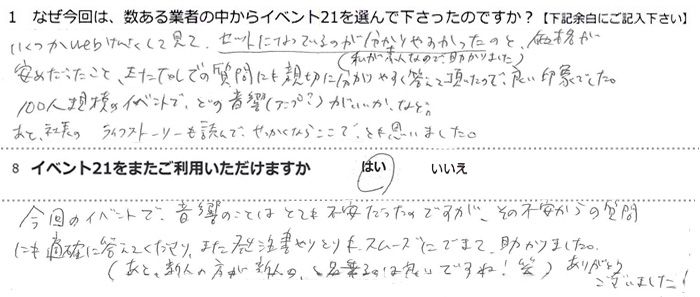 1 なぜ今回は、数ある業者の中からイベント21を選んで下さったのですか？【下記余白にご記入下さい】
いくつかweb けんさくして見て、セットになっているのが分かりやすかったのと、価格が
（私が素人なので、助かりました）
安めだったこと、またTELでの質問にも親切に分かりやすく答えて頂いたので、良い印象でした。
100人規模のイベントで、どの音響（アンプ？）がいいか、など。
あと、社長の ライフストーリーも読んで、せっかくならここで、とも思いました。
8 イベント21をまたご利用いただけますか はい いいえ
今回のイベントで、音響のことはとても不安だったのですが、その不安からの質問
にも適確に答えてくださり、また発注書やりとりもスムーズにできて、助かりました。
（あと、新人の方が新人の、と名乗るのは良いですね！笑） ありがとう
ございました！